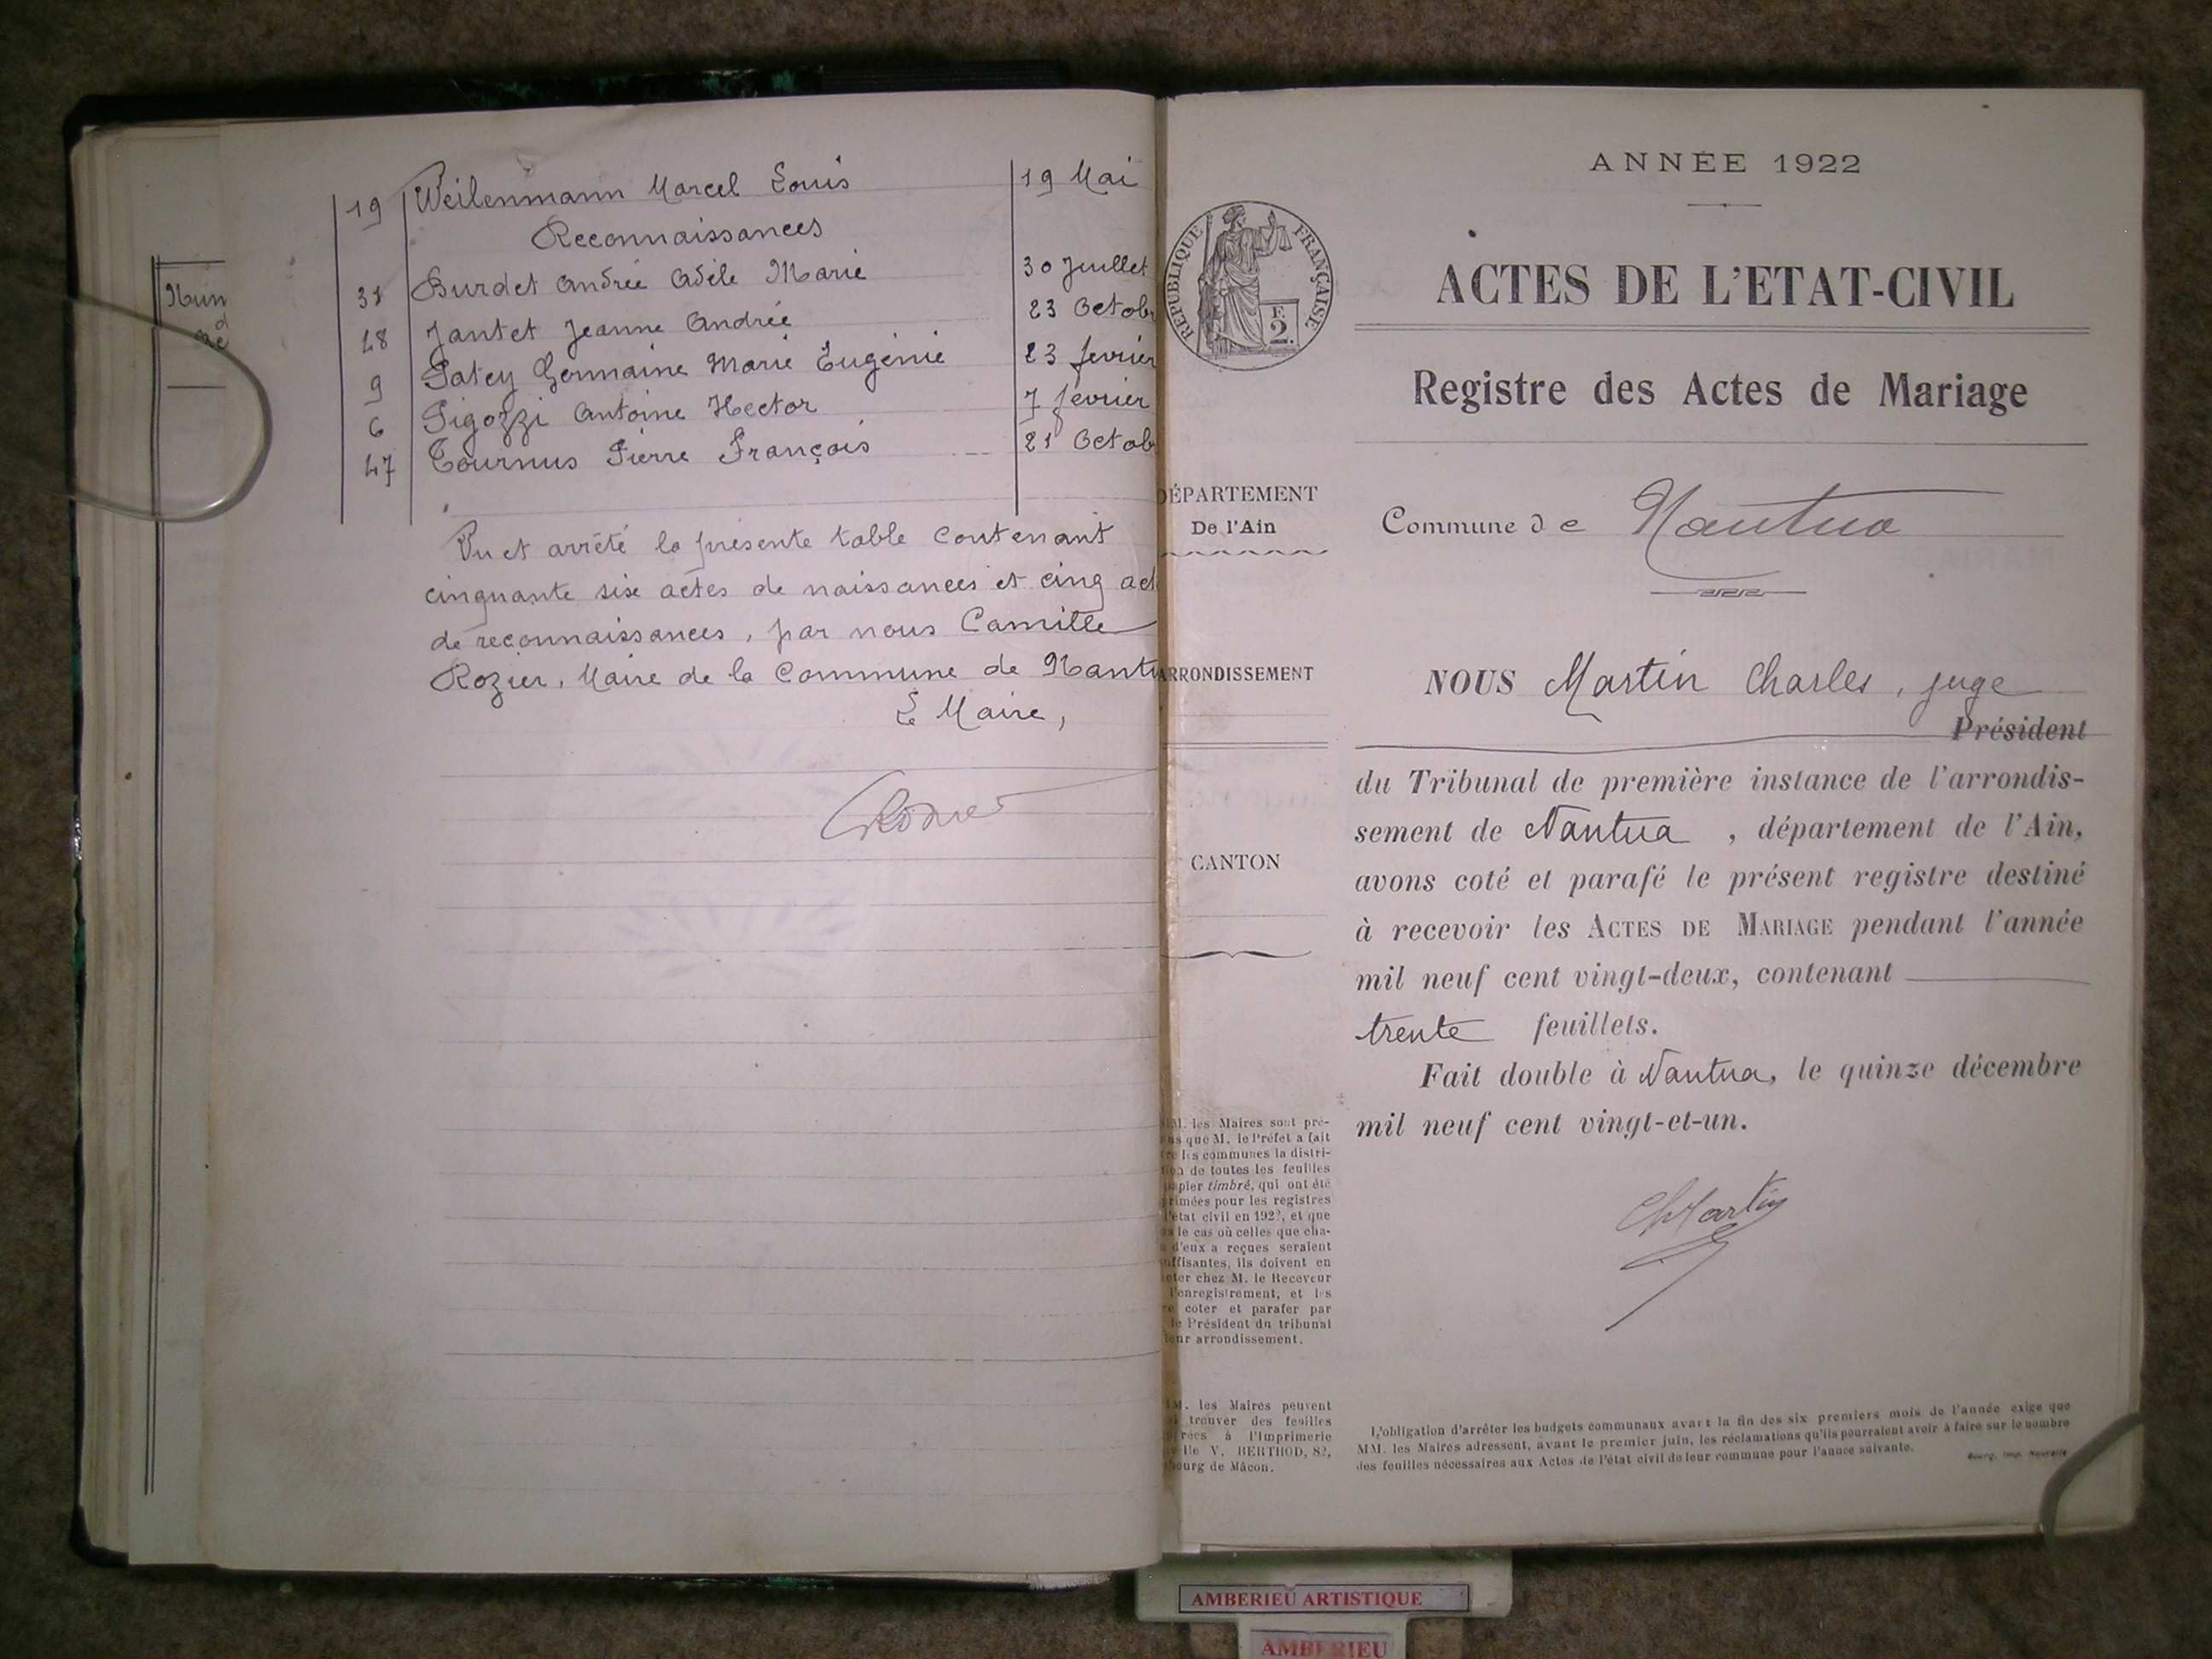 19 Weilenmann Marcel Louis 19 Mai
Reconnaissances
31 Burdet Andrée Adèle Marie 30 Juillet
48 Jantet Jeanne Andrée 23 Octob
9 Patey Germaine Marie Eugénie 23 fevrier
6 Pigozzi Antoine Hector 7 fevrier
47 Tournus Pierre François 21 Octob
Vu et arrêté la présente table contenant
cinquante six actes de naissances et cinq act
de reconnaissances, par nous Camille
Rozier, Maire de la Commune de Nantu
Le Maire,
Num
ANNÉE 1922
RÉPUBLIQUE FRANÇAISE
F.
2.
ACTES DE L'ETAT-CIVIL
Registre des Actes de Mariage
DÉPARTEMENT
De l'Ain
Commune de Nantua
ARRONDISSEMENT
CANTON
NOUS Martin Charles, juge
Président
du Tribunal de première instance de l'arrondis-
sement de Nantua, département de l'Ain,
avons coté et parafé le présent registre destiné
à recevoir les ACTES DE MARIAGE pendant l'année
mil neuf cent vingt-deux, contenant
trente feuillets.
Fait double à Nantua, le quinze décembre
mil neuf cent vingt-et-un.
ChMartin
MM. les Maires sont pré-
que M. le Préfet a fait
les communes la distri-
de toutes les feuilles
papier timbré, qui ont été
primées pour les registres
l'état civil en 1922, et que
le cas où celles que cha-
d'eux a reçues seraient
ffisantes, ils doivent en
ter chez M. le Receveur
l'enregistrement, et les
coter et parafer par
le Président du tribunal
leur arrondissement.
MM. les Maires peuvent
trouver des feuilles
rées à l'Imprimerie
V. BERTHOD, 82,
bourg de Mâcon.
L'obligation d'arrêter les budgets communaux avant la fin des six premiers mois de l'année exige que
MM. les Maires adressent, avant le premier juin, les réclamations qu'ils pourraient avoir à faire sur le nombre
des feuilles nécessaires aux Actes de l'état civil de leur commune pour l'année suivante.
Bourg, Imp. Nouvelle
AMBERIEU ARTISTIQUE
AMBERIEU